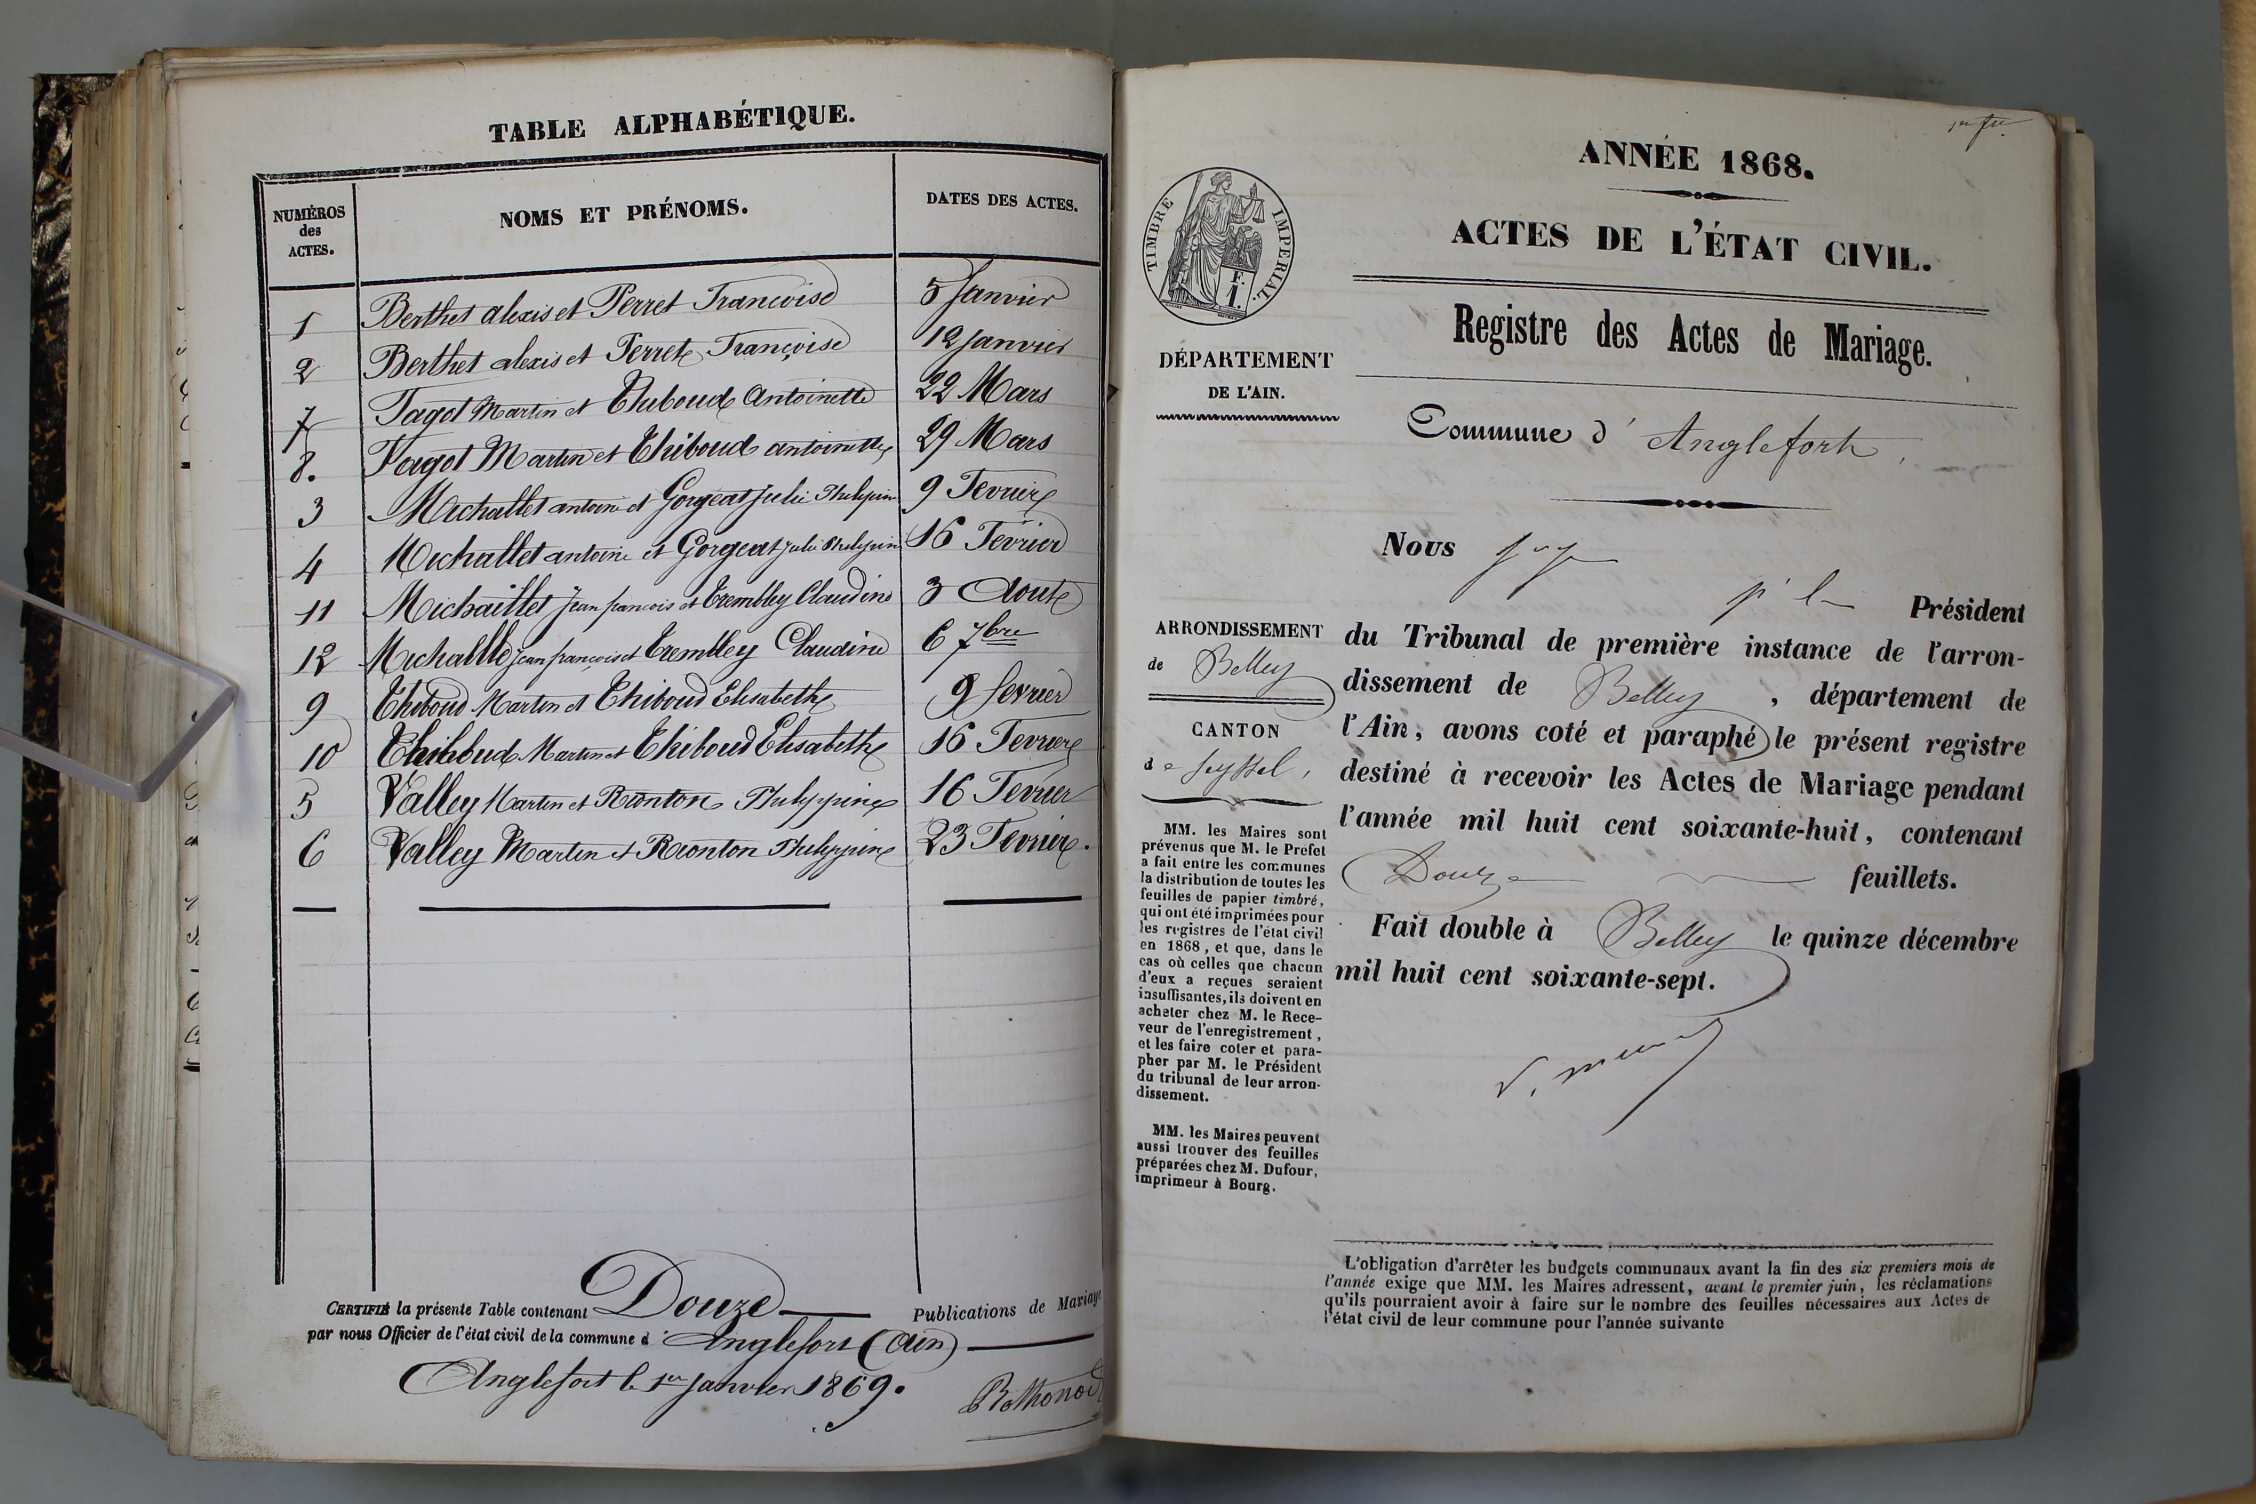 TABLE ALPHABÉTIQUE.
NUMÉROS des ACTES. NOMS ET PRÉNOMS. DATES DES ACTES.
1 Berthet alexis et Perret Francoise 5 Janvier
2 Berthet alexis et Perret Françoise 12 Janvier
7 Fagot Martin et Thiboud Antoinette 22 Mars
8. Fagot Martin et Thiboud antoinette 29 Mars
3 Michallet antoine et Gorgeat Julie Philipine 9 Fevrier
4 Michallet antoine et Gorgeat Julie Philipine 16 Février
11 Michaillet Jean francois et Trembley Claudine 3 Aout
12 Michallet Jean françois et Trembley Claudine 6 7bre
9 Thiboud Martin et Thiboud Elisabeth 9 fevrier
10 Thiboud Martin et Thiboud Elisabeth 16 Fevrier
5 Valley Martin et Rionton Philippine 16 Fevrier
6 Valley Martin et Rionton Philippine 23 Fevrier.
CERTIFIÉ la présente Table contenant Douze Publications de Mariage
par nous Officier de l'état civil de la commune d'Anglefort (Ain)
Anglefort le 1er Janvier 1869.
Bothonod
1er fet
ANNÉE 1868.
ACTES DE L'ÉTAT CIVIL.
TIMBRE IMPÉRIAL.
F.
1.
Registre des Actes de Mariage.
DÉPARTEMENT
DE L'AIN.
Commune d'Anglefort
Nous Juge
pr le Président
du Tribunal de première instance de l'arron-
dissement de Belley, département de
l'Ain, avons coté et paraphé le présent registre
destiné à recevoir les Actes de Mariage pendant
l'année mil huit cent soixante-huit, contenant
Douze feuillets.
Fait double à Belley le quinze décembre
mil huit cent soixante-sept.
ARRONDISSEMENT
de Belley
CANTON
de Seyssel,
MM. les Maires sont
prévenus que M. le Prefet
a fait entre les communes
la distribution de toutes les
feuilles de papier timbré,
qui ont été imprimées pour
les registres de l'état civil
en 1868, et que, dans le
cas où celles que chacun
d'eux a reçues seraient
insuffisantes, ils doivent en
acheter chez M. le Rece-
veur de l'enregistrement,
et les faire coter et para-
pher par M. le Président
du tribunal de leur arron-
dissement.
MM. les Maires peuvent
aussi trouver des feuilles
préparées chez M. Dufour,
imprimeur à Bourg.
L'obligation d'arrêter les budgets communaux avant la fin des six premiers mois de
l'année exige que MM. les Maires adressent, avant le premier juin, les réclamations
qu'ils pourraient avoir à faire sur le nombre des feuilles nécessaires aux Actes de
l'état civil de leur commune pour l'année suivante